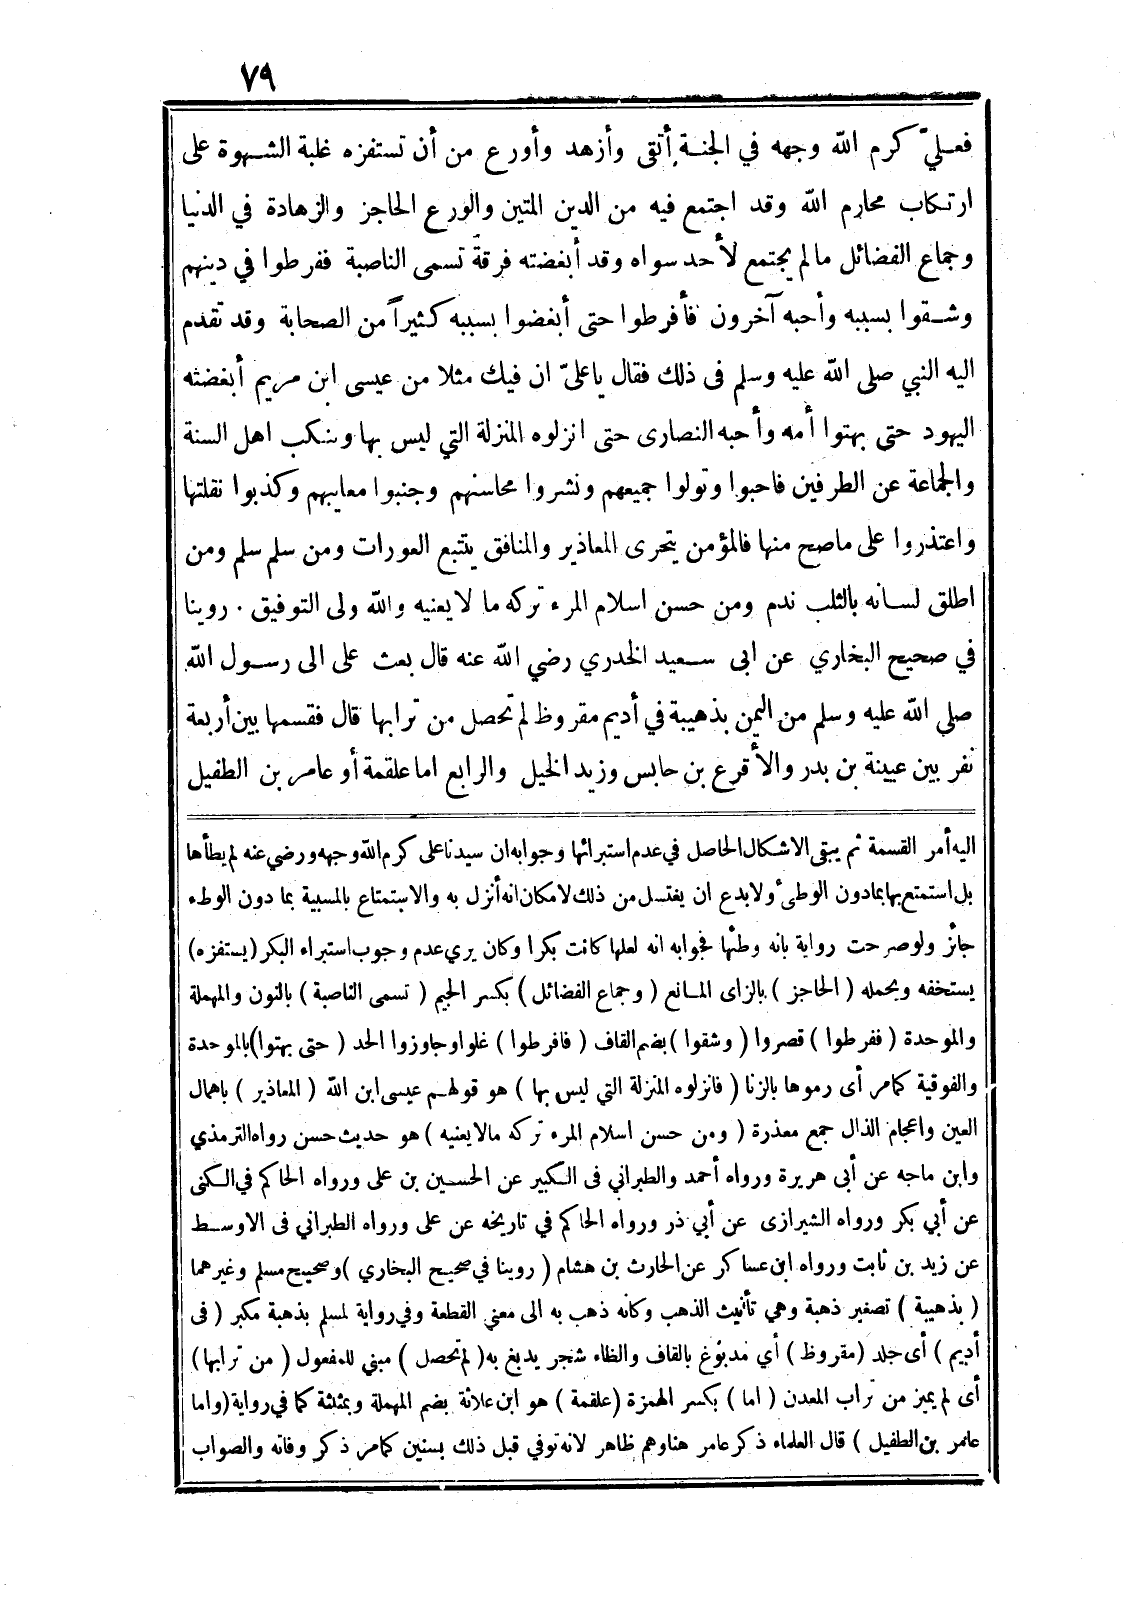 ٧٩
فعليّ كرم الله وجهه في الجنة أتقى وأزهد وأورع من أن تستفزه غلبة الشهوة على
ارتكاب محارم الله وقد اجتمع فيه من الدين المتين والورع الحاجز والزهادة في الدنيا
وجماع الفضائل مالم يجتمع لأحد سواه وقد أبغضته فرقة تسمى الناصبة ففرطوا في دينهم
وشقوا بسببه وأحبه آخرون فأفرطوا حتى أبغضوا بسببه كثيراً من الصحابة وقد تقدم
اليه النبي صلى الله عليه وسلم فى ذلك فقال ياعليّ ان فيك مثلا من عيسى ابن مريم أبغضته
اليهود حتى بهتوا أمه وأحبه النصارى حتى انزلوه المنزلة التي ليس بها وشكب اهل السنة
والجماعة عن الطرفين فاحبوا وتولوا جميعهم ونشروا محاسنهم وجنبوا معايبهم وكذبوا نقلتها
واعتذروا على ماصح منها فالمؤمن يتحرى المعاذير والمنافق يتتبع العورات ومن سلم سلم ومن
اطلق لسانه بالثلب ندم ومن حسن اسلام المرء تركه ما لا يعنيه والله ولى التوفيق . روينا
في صحيح البخاري عن ابى سعيد الخدري رضي الله عنه قال بعث على الى رسول الله
صلى الله عليه وسلم من اليمن بذهيبة في أديم مقروظ لم تحصل من ترابها قال فقسمها بين أربعة
نفر بين عيينة بن بدر والأقرع بن حابس وزيد الخيل والرابع اما علقمة أو عامر بن الطفيل
اليه أمر القسمة ثم يبقى الاشكال الحاصل في عدم استبرائها وجوابه ان سيدنا على كرم الله وجهه ورضي عنه لم يطأها
بل استمتع بها بمادون الوطئ ولا بدع ان يغتسل من ذلك لامكان انه أنزل به والاستمتاع بالمسبية بما دون الوطء
جائز ولو صرحت رواية بانه وطئها فجوابه انه لعلها كانت بكرا وكان يري عدم وجوب استبراء البكر (يستفزه)
يستخفه ويحمله ( الحاجز ) بالزاى المانع ( وجماع الفضائل ) بكسر الجيم ( تسمى الناصبة ) بالنون والمهملة
والموحدة ( ففرطوا ) قصروا ( وشقوا ) بضم القاف ( فافرطوا ) غلوا وجاوزوا الحد ( حتى بهتوا ) بالموحدة
والفوقية كمامر أى رموها بالزنا ( فانزلوه المنزلة التي ليس بها ) هو قولهم عيسى ابن الله ( المعاذير ) باهمال
العين واعجام الذال جمع معذرة ( ومن حسن اسلام المرء تركه مالا يعنيه ) هو حديث حسن رواه الترمذي
وابن ماجه عن أبى هريرة ورواه أحمد والطبراني فى الكبير عن الحسين بن على ورواه الحاكم في الكنى
عن أبي بكر ورواه الشيرازى عن أبي ذر ورواه الحاكم في تاريخه عن على ورواه الطبراني فى الاوسط
عن زيد بن ثابت ورواه ابن عساكر عن الحارث بن هشام ( روينا في صحيح البخاري ) وصحيح مسلم وغيرهما
( بذهيبة ) تصغير ذهبة وهي تأنيث الذهب وكانه ذهب به الى معني القطعة وفي رواية لمسلم بذهبة مكبر ( فى
أديم ) أى جلد ( مقروظ ) أي مدبوغ بالقاف والظاء شجر يدبغ به ( لم تحصل ) مبني للمفعول ( من ترابها )
أى لم يميز من تراب المعدن ( اما ) بكسر الهمزة ( علقمة ) هو ابن علاثة بضم المهملة وبمثلثة كما في رواية ( واما
عامر بن الطفيل ) قال العلماء ذكر عامر هنا وهم ظاهر لانه توفي قبل ذلك بسنين كمامر ذكر وفاته والصواب